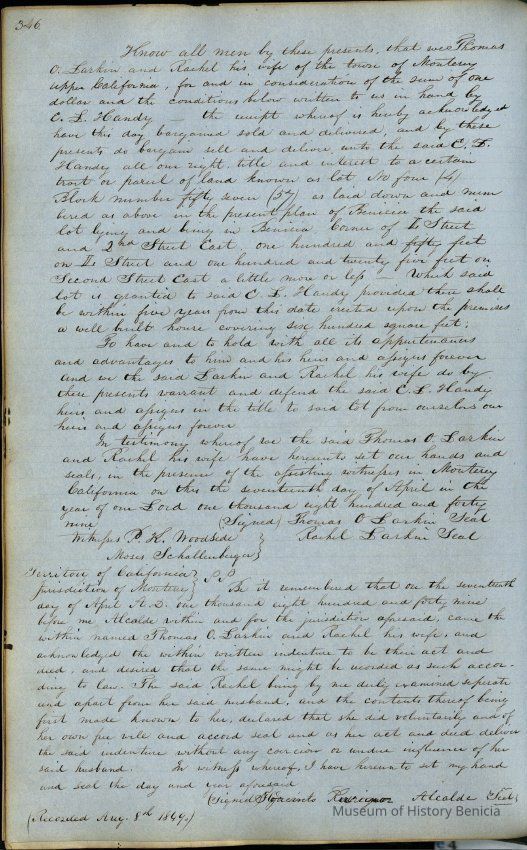 346
Know all men by these presents, that we Thomas
O. Larkin and Rachel his wife of the town of Monterey
Upper California, for and in consideration of the sum of one
dollar and the conditions below written to us in hand by
C. L. Handy — the receipt whereof is hereby acknowledged
have this day bargained sold and delivered, and by these
presents do bargain sell and deliver, unto the said C. L.
Handy all our right, title and interest to a certain
tract or parcel of land known as lot No four (4)
Block number fifty seven (57) as laid down and num
bered as above in the present plan of Benicia the said
lot lying and being in Benicia Corner of Street
and 2nd Street East, one hundred and fifty feet
on Street and one hundred and twenty five feet on
Second Street East a little more or less — Which said
lot is granted to said C. L. Handy provided there shall
be within five years from this date erected upon the premises
a well built house covering six hundred square feet;
To have and to hold with all its appurtenances
and advantages to him and his heirs and assigns forever
And we the said Larkin and Rachel his wife do by
these presents warrant and defend the said C. L. Handy
heirs, and assigns in the title to said lot from ourselves our
heirs and assigns forever
In testimony whereof we the said Thomas O. Larkin
and Rachel his wife have hereunto set our hands and
seals, in the presence of the attesting witnesses in Monterey
California on this the seventeenth day of April in the
year of our Lord one thousand eight hundred and forty
nine (Signed) Thomas O Larkin Seal
Witnesses P. K. Woodside } Rachel Larkin Seal
Moses Schallenberger }
Territory of California }
Jurisdiction of Monterey } SS Be it remembered that on the seventeenth
day of April A.D. one thousand eight hundred and forty nine
before me Alcalde within and for the jurisdiction aforesaid, came the
within named Thomas O. Larkin and Rachel his wife, and
acknowledged the within written indenture to be their act and
deed, and desired that the same might be recorded as such accor-
ding to law. The said Rachel being by me duly examined seperate
and apart from her said husband, and the contents thereof being
first made known to her, declared that she did voluntarily and of
her own free will and accord seal and as her act and deed deliver
the said indenture without any coercion or undue influence of her
said husband. In witness whereof, I have hereunto set my hand
and seal the day and year aforesaid
(Signed) Jacinto Rodriguez Alcalde Seal
(Recorded Aug. 8th 1849.)
Museum of History Benicia